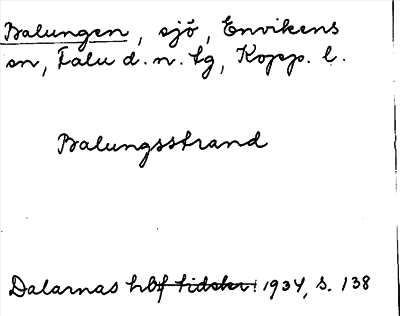 Balungen, sjö, Envikens
sn, Falu d. n. tg, Kopp. l.
Balungsstrand
Dalarnas hbf tidskr. 1934, s. 138